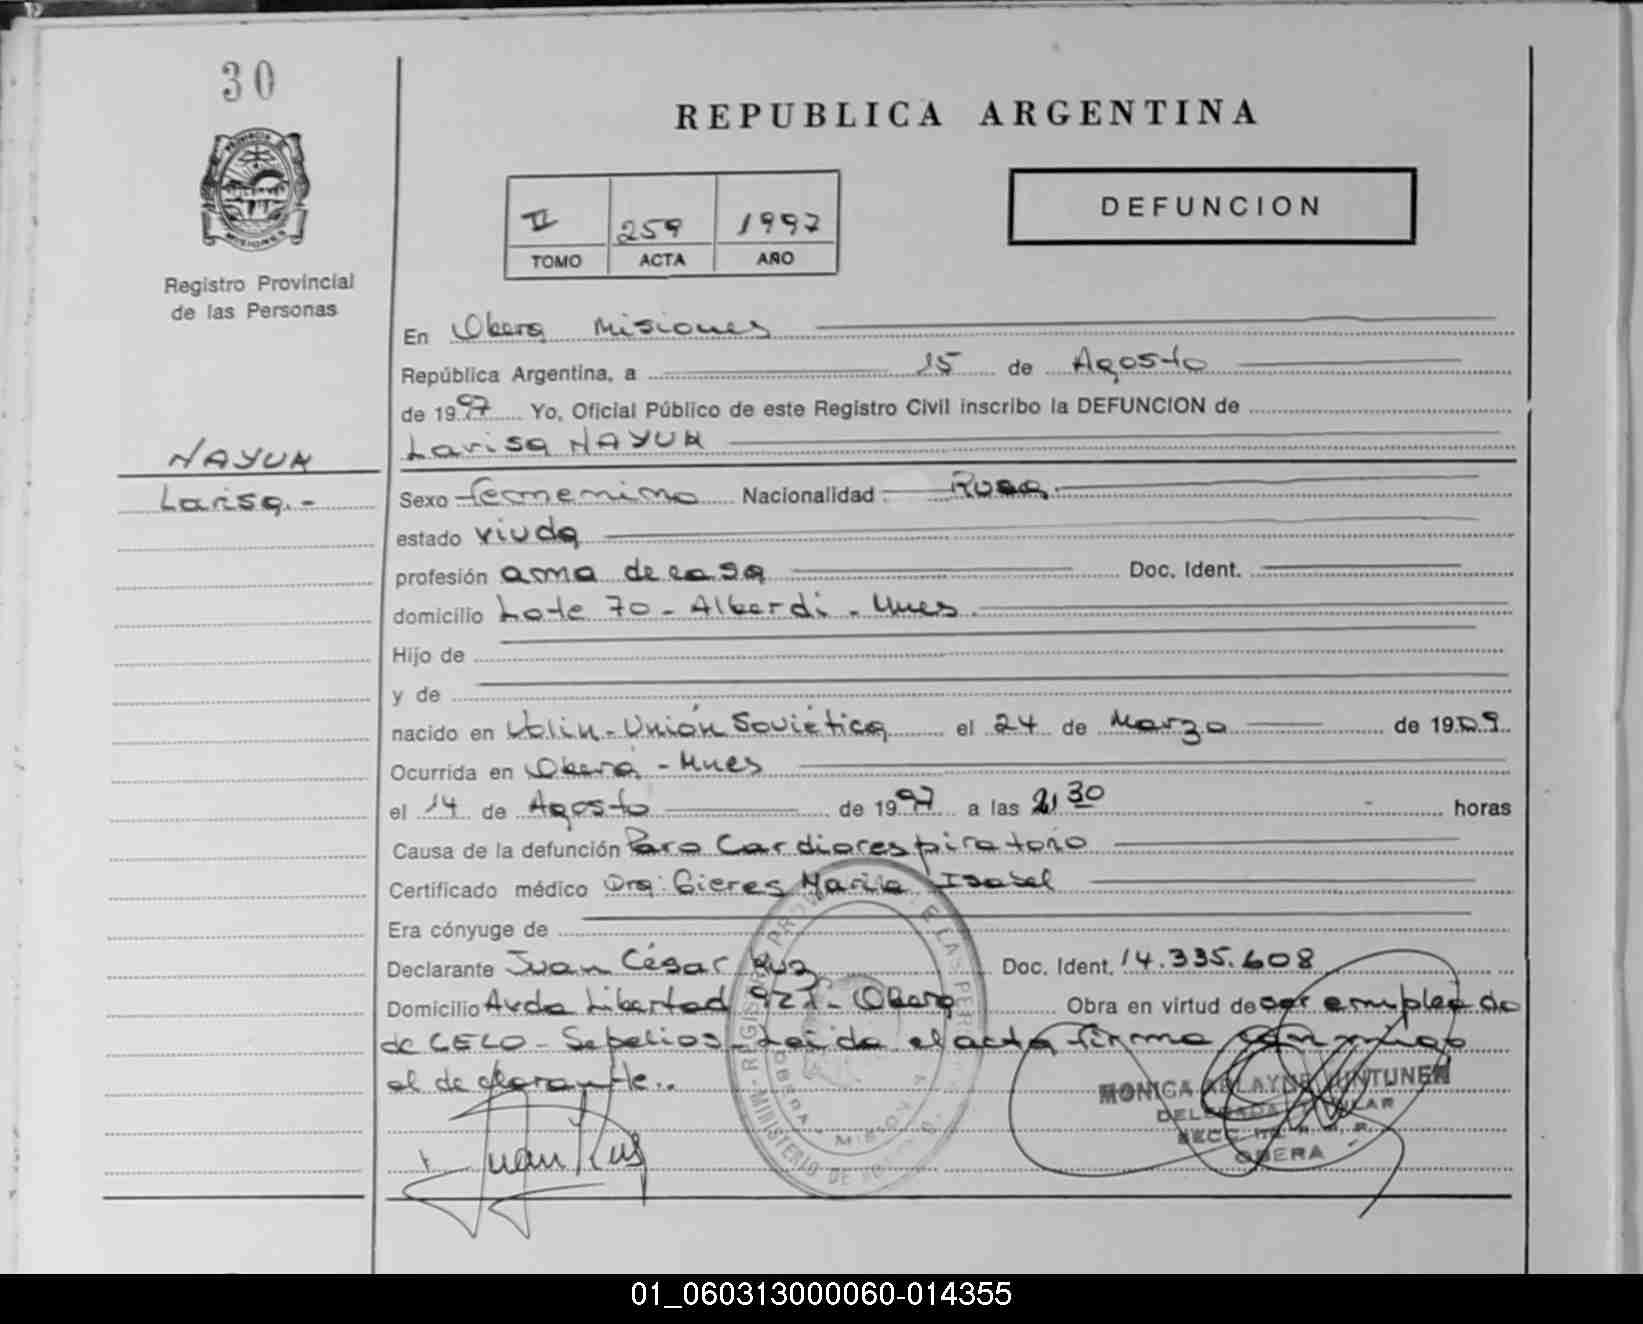 30
REPUBLICA ARGENTINA
PROVINCIA
MISIONES
Registro Provincial
de las Personas
II 259 1997
TOMO ACTA AÑO
DEFUNCION
En Obera Misiones
República Argentina, a 15 de Agosto
de 1997 Yo, Oficial Público de este Registro Civil inscribo la DEFUNCION de
Larisa NAYUK
NAYUK
Larisa.-
Sexo femenino Nacionalidad Rusa.
estado viuda
profesión ama de casa Doc. Ident.
domicilio Lote 70 - Alberdi - Mnes.
Hijo de
y de
nacido en Volin - Unión Soviética el 24 de Marzo de 1909.
Ocurrida en Oberá - Mnes
el 14 de Agosto de 1997 a las 21 30 horas
Causa de la defunción Paro Cardiorespiratorio
Certificado médico Dra: Gieres María Isabel
Era cónyuge de
Declarante Juan César Ruz Doc. Ident. 14.335.608
Domicilio Avda Libertad 927 - Obera Obra en virtud de ser empleado
de CELO - Sepelios - Leida el acta firma conmigo
el declarante..
Juan Ruz
MONICA UNTUNEN
DELEGADA TITULAR
OBERA
MINISTERIO DE
OBERA MISIONES
01_060313000060-014355